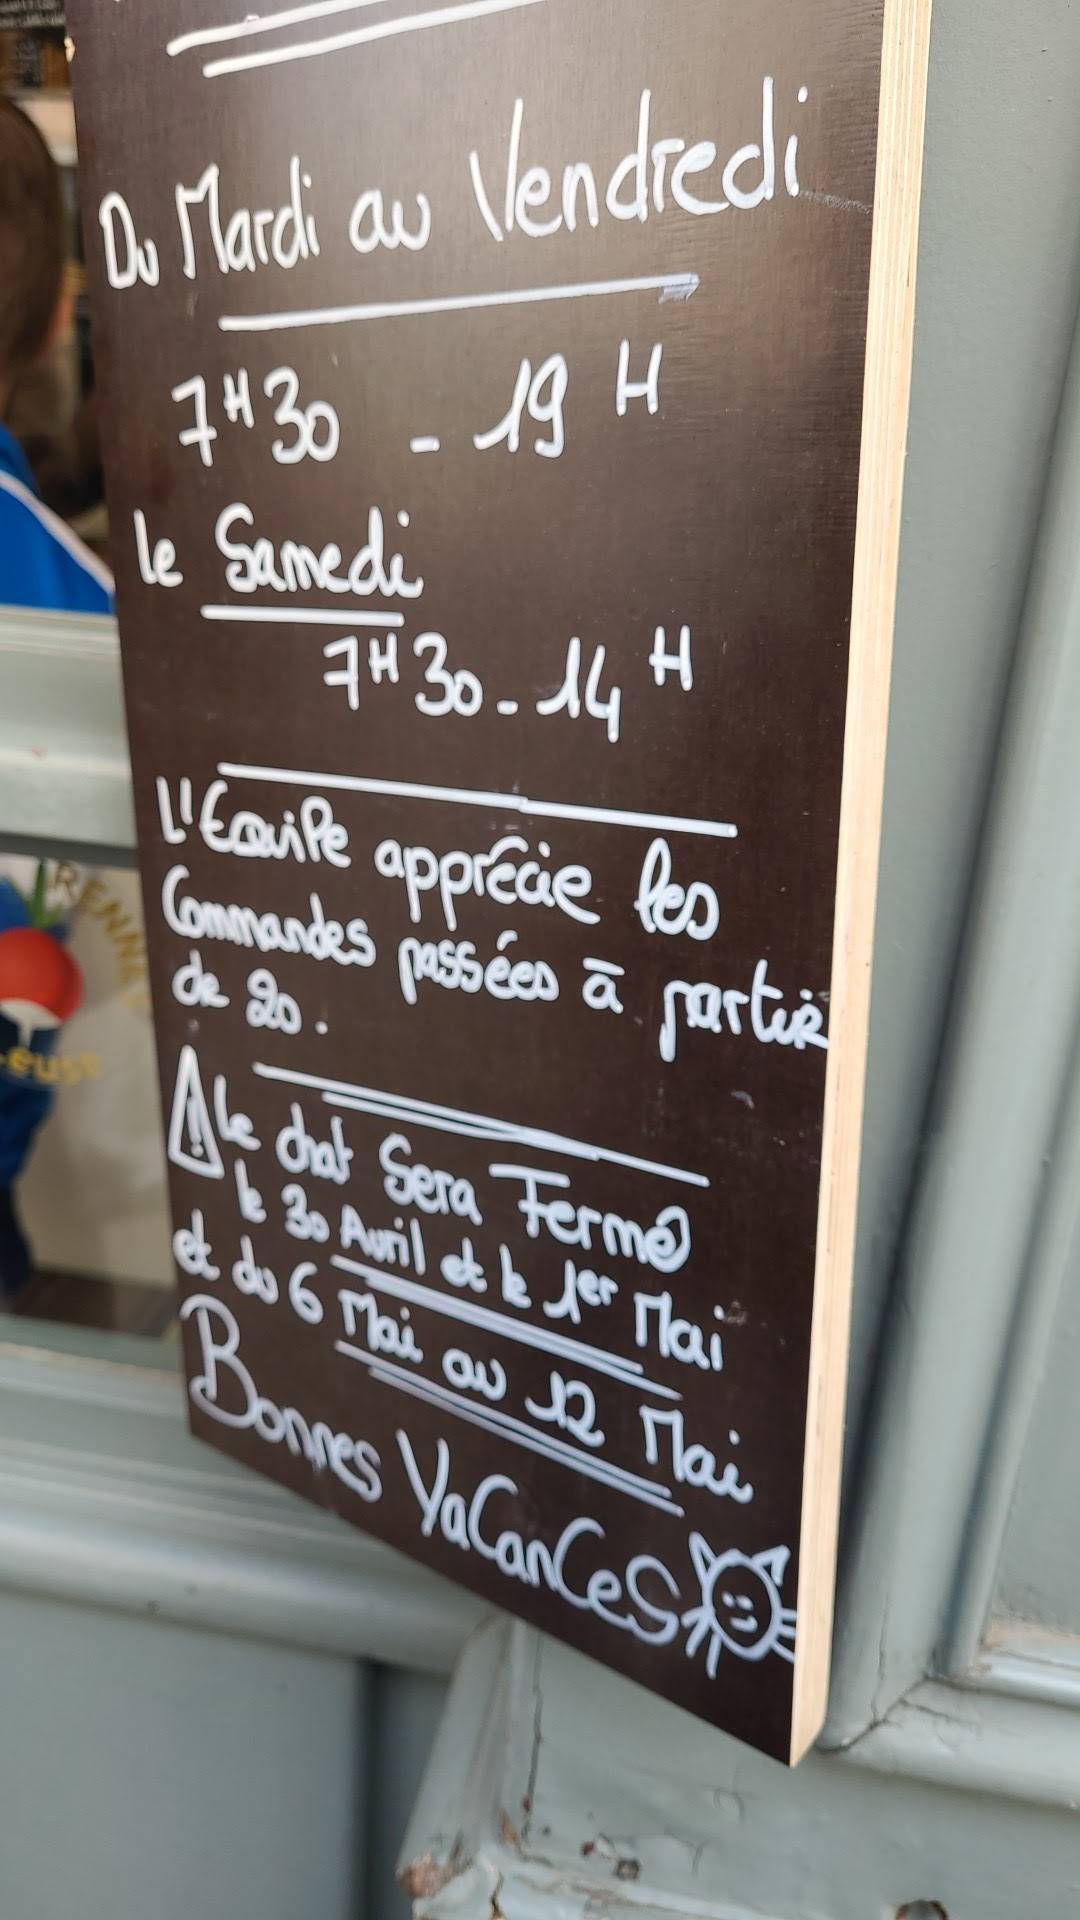 Du Mardi au Vendredi
7H30 - 19H
le Samedi
7H30 - 14H
L'EquiPe apprécie les
Commandes passées à partir
de 20.
⚠ Le chat Sera Fermé
le 30 Avril et le 1er Mai
et du 6 Mai au 12 Mai
Bonnes VaCanCeS
RENN
eus